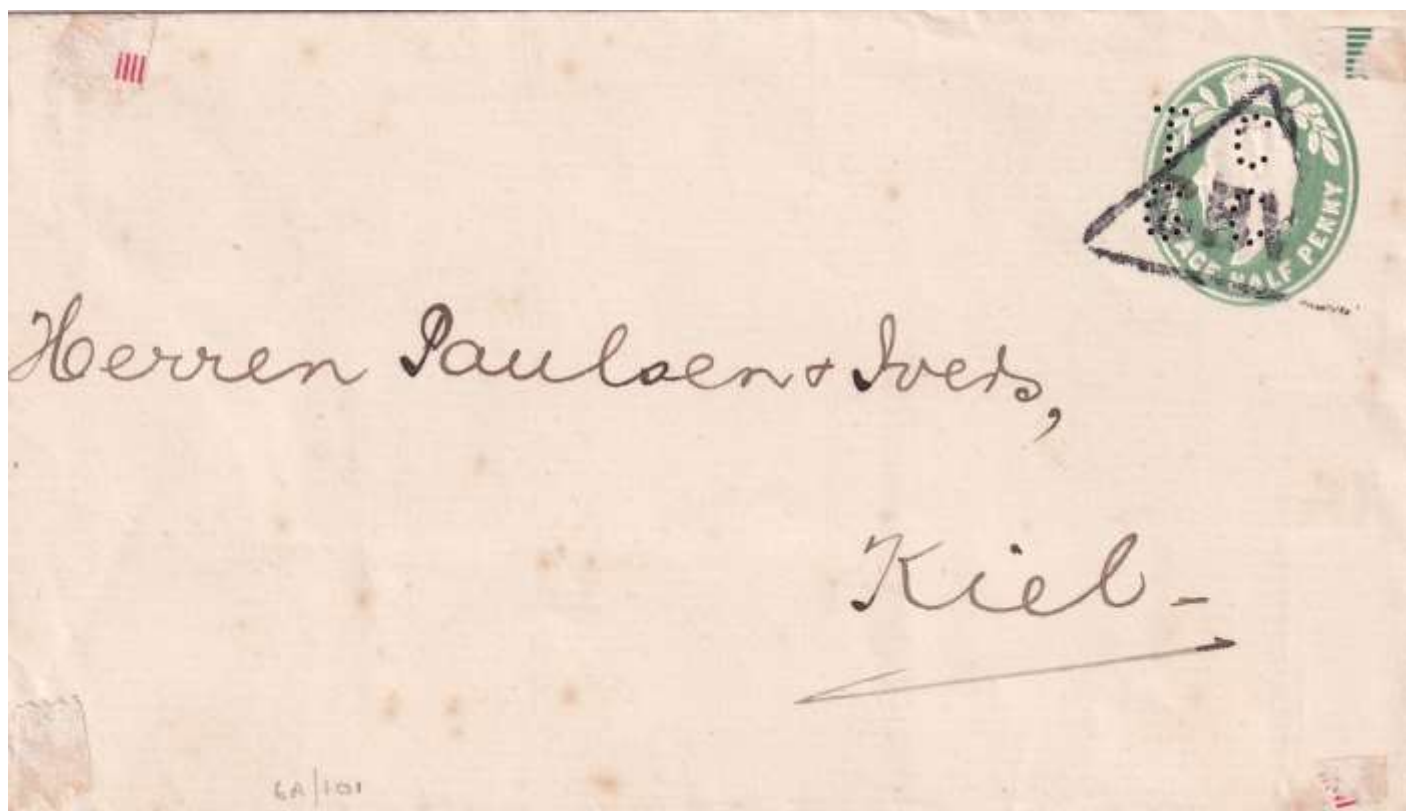 POSTAGE HALF PENNY
Herren Paulsen + Ivers,
Kiel -
6A/101